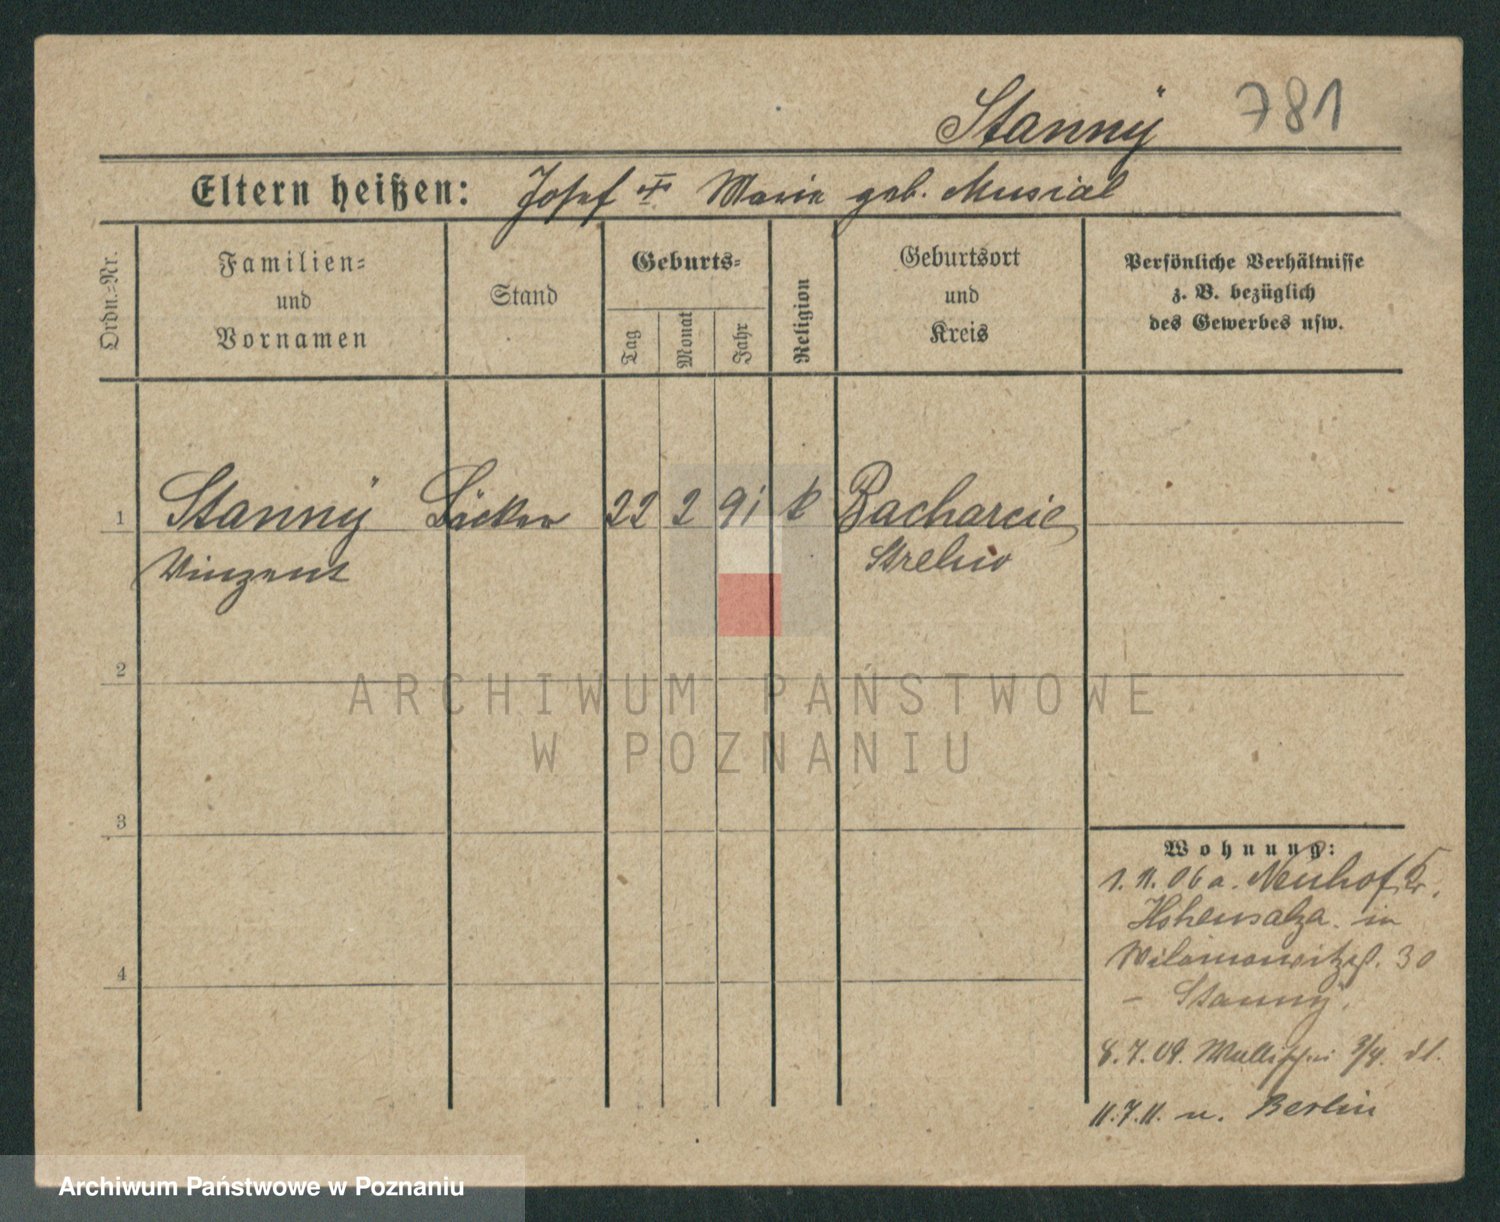 Stanny 781
Eltern heißen: Josef Marie geb. Musial
Ordn.=Nr.
Familien=
und
Vornamen
Stand
Geburts=
Tag
Monat
Jahr
Religion
Geburtsort
und
Kreis
Persönliche Verhältnisse
z. B. bezüglich
des Gewerbes usw.
1 Stanny Bäcker 22 2 91 k Bacharcie
Vinzent Strelno
2
3
4
Wohnung:
1. 11. 06 a. Neuhof, Kr.
Hohensalza. in
30
– Stanny.
8.7.09. 3/4.
11.7.11. n. Berlin
ARCHIWUM PAŃSTWOWE
W POZNANIU
Archiwum Państwowe w Poznaniu